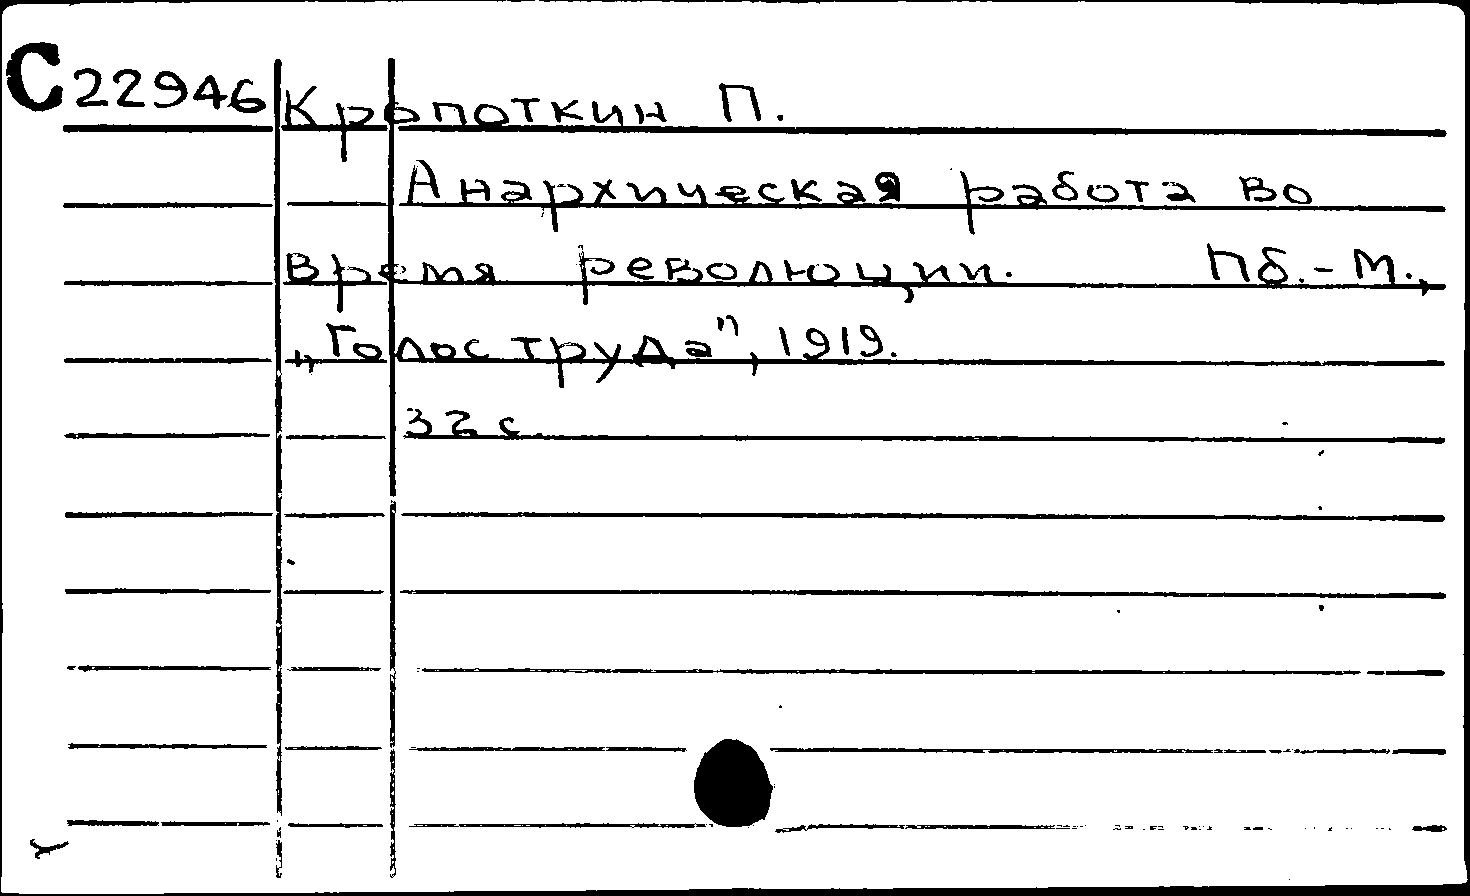 C 22946 Кропоткин П.
Анархическая работа во
время революции. Пб.-М.,
„Голос труда", 1919.
32 с.